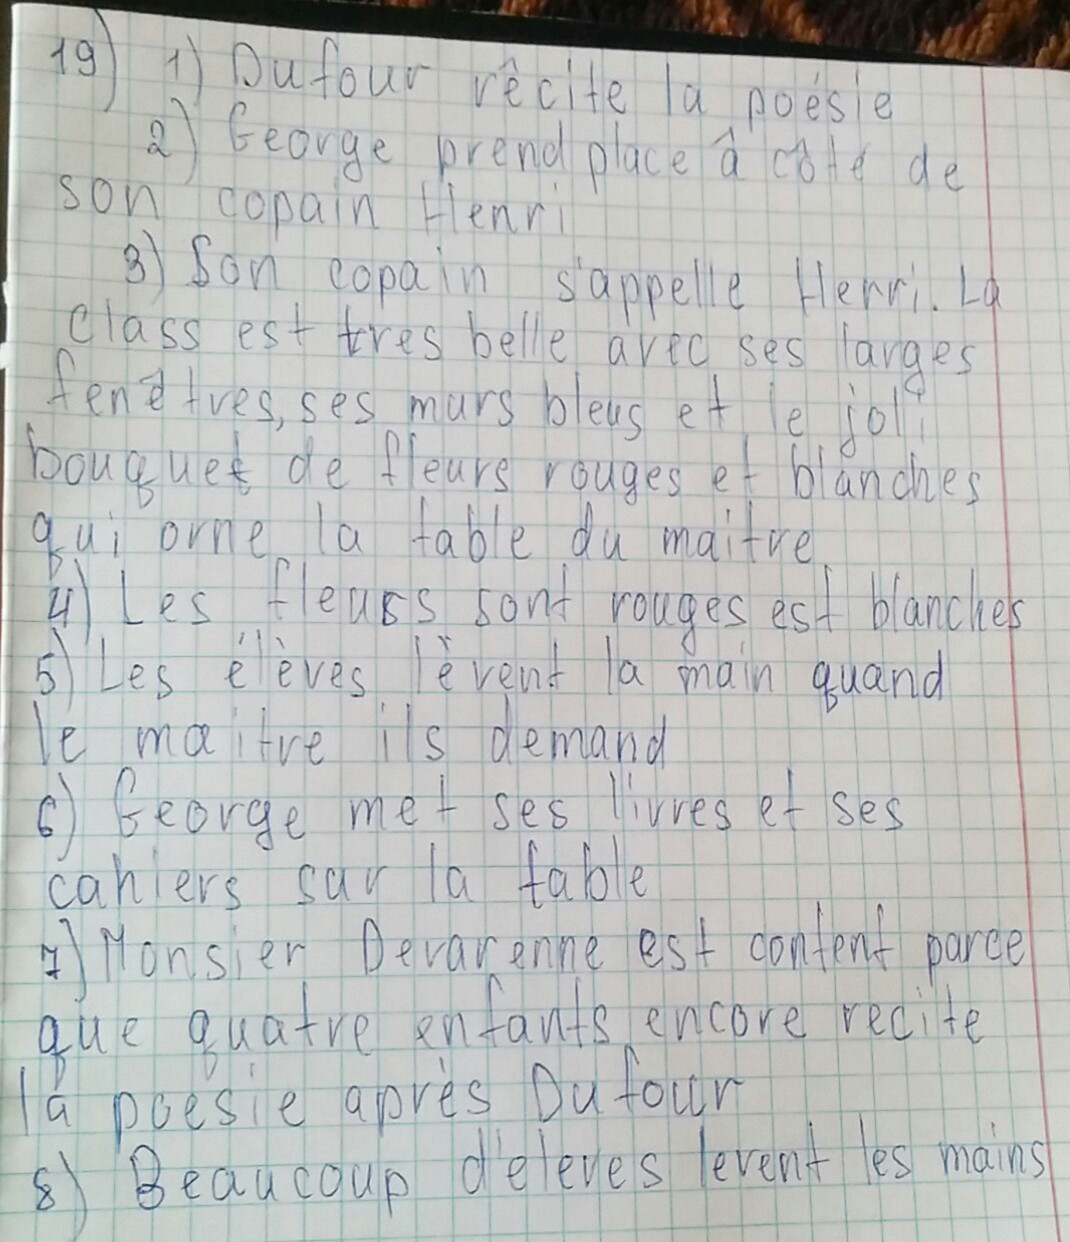 19) 1) Dufour récite la poésie
2) George prend place à côté de
son copain Henri
3) Son copain s'appelle Henri. La
class est tres belle avec ses larges
fenêtres, ses murs bleus et le joli
bouquet de fleurs rouges et blanches
qui orne la table du maitre
4) Les fleurs sont rouges est blanches
5) Les élèves lèvent la main quand
le maitre ils demand
6) George met ses livres et ses
cahiers sur la table
7) Monsier Devarenne est content parce
que quatre enfants encore recite
la poesie après Dufour
8) Beaucoup d'eleves levent les mains